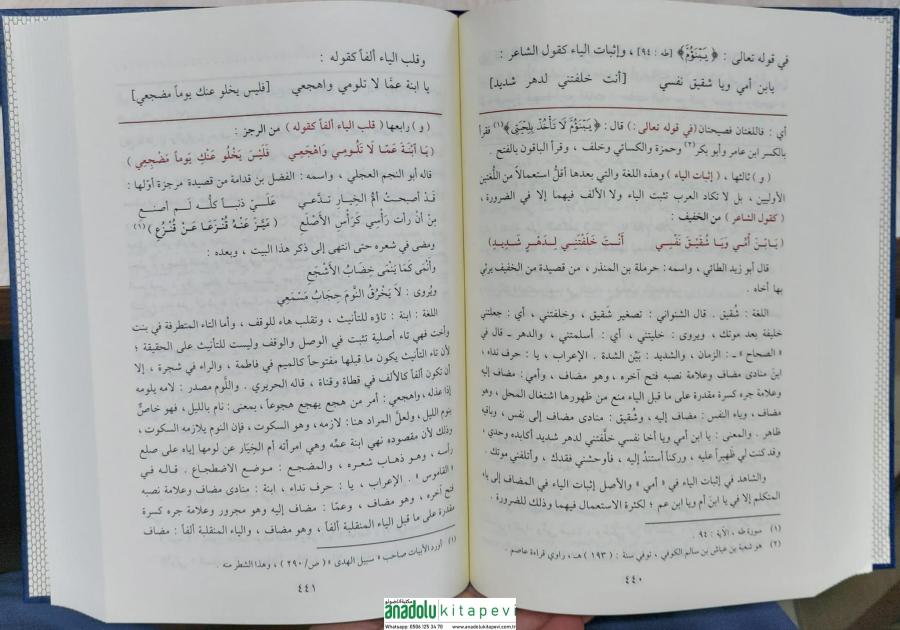 في قوله تعالى : ﴿ يَبْنَؤُمَّ ﴾ [طه : ٩٤] ، وإثبات الياء كقول الشاعر :
يابن أمي ويا شقيق نفسي [أنت خلفتني لدهر شديد]
أي : فاللغتان فصيحتان (في قوله تعالى :) قال : ﴿ يَبْنَؤُمَّ لَا تَأْخُذْ بِلِحْيَتِي ﴾(١) فقرأ
بالكسر ابن عامر وأبو بكر(٢) وحمزة والكسائي وخلف ، وقرأ الباقون بالفتح .
( و ) ثالثها ، ( إثبات الياء ) وهذه اللغة والتي بعدها أقلُّ استعمالاً من اللُّغتين
الأوليين ، بل لا تكاد العرب تثبت الياء ولا الألف فيهما إلا في الضرورة ،
( كقول الشاعر ) من الخفيف :
(يَا بْنَ أُمِّي وَيَا شُقَيِّقَ نَفْسِي أَنْتَ خَلَّفْتَنِي لِدَهْرٍ شَدِيدِ)
قال أبو زيد الطائي ، واسمه : حرملة بن المنذر ، من قصيدة من الخفيف يرثي
بها أخاه .
اللغة : شُقيق . قال الشنواني : تصغير شقيق ، وخلفتني ، أي : جعلتني
خليفة بعد موتك ، ويروى : خليتني ، أي : أسلمتني ، والدهر ـ قال في
« الصحاح » ـ : الزمان ، والشديد : بَيِّن الشدة . الإعراب ، يا : حرف نداء ،
ابنَ منادى مضاف وعلامة نصبه فتح آخره ، وهو مضاف ، وأمي : مضاف إليه
وعلامة جره كسرة مقدرة على ما قبل الياء منع من ظهورها اشتغال المحل ، وهو
مضاف ، وياء النفس : مضاف إليه ، وشُقيق : منادى مضاف إلى نفس ، وباقيه
ظاهر . والمعنى : يا ابن أمي ويا أخا نفسي خلَّفتني لدهر شديد أكابده وحدي ،
وقد كنت لي ظهيراً عليه ، وركناً أستندُ إليه ، فأوحشني فقدك ، وأتلفني موتك .
والشاهد في إثبات الياء في « أمي » والأصل إثبات الياء في المضاف إلى ياء
المتكلم إلا في يا ابنَ أم ويا ابن عم ؛ لكثرة الاستعمال فيهما وذلك للضرورة .
(١) سورة طه ، الآية : ٩٤ .
(٢) هو شعبة بن عياش بن سالم الكوفي ، توفي سنة : ( ١٩٣ ) هـ ، راوي قراءة عاصم .
٤٤٠
وقلب الياء ألفاً كقوله :
يا ابنة عمَّا لا تلومي واهجعي [فليس يخلو عنك يوماً مضجعي]
( و ) رابعها ( قلب الياء ألفاً كقوله ) من الرجز :
( يَا ابْنَةَ عَمَّا لَا تَلُومِي وَاهْجَعِي فَلَيْسَ يَخْلُو عَنْكِ يَوْماً مَضْجَعِي )
قاله أبو النجم العجلي ، واسمه : الفضل بن قدامة من قصيدة مرجزة أوّلها :
قَدْ أصبحتْ أمُّ الخِيارِ تدَّعي عَلَيَّ ذنباً كلُّه لم أصنعِ
مِنْ أنْ رأت رَأْسِي كَرَأْسِ الأَصْلَعِ ( مَيَّزَ عَنْهُ قُنْزُعاً عَنْ قُنْزُعِ )(١)
ومضى في شعره حتى انتهى إلى ذكر هذا البيت ، وبعده :
وَانْمَى كَمَا يَنْمَى خِضَابُ الأَشْجَعِ
ويُروى : لَا يَخْرُقُ النَّوْمَ حِجَابُ مَسْمَعِي
اللغة : ابنة : تاؤه للتأنيث ، وتقلب هاء للوقف ، وأما التاء المتطرفة في بنت
وأخت فهي تاء أصلية تثبت في الوصل والوقف وليست للتأنيث على الحقيقة ؛
لأن تاء التأنيث يكون ما قبلها مفتوحاً كالميم في فاطمة ، والراء في شجرة ، إلا
أن تكون ألفاً كالألف في قطاة وقناة ، قاله الحريري . واللَّوم مصدر : لامه يلومه
إذا عذله ، واهجعي : أمر من هجع يهجع هجوعاً ، بمعنى : نام بالليل ، فهو خاصٌّ
بنوم الليل ، ولعلَّ المراد هنا : لازمه ، وهو السكوت ، فإن النوم يلازمه السكوت ،
وذلك لأن مقصوده نهي ابنة عمِّه وهي امرأته أم الخِيَار عن لومها إياه على صلع
رأسه ، وهو ذهاب شعره ، والمضجع : موضع الاضطجاع . قاله في
« القاموس » . الإعراب ، يا : حرف نداء ، ابنة : منادى مضاف وعلامة نصبه
فتح آخره ، وهو مضاف ، وعمّا : مضاف إليه وهو مجرور وعلامة جره كسرة
مقدرة على ما قبل الياء المنقلبة ألفاً ، وهو مضاف ، والياء المنقلبة ألفاً : مضاف
(١) أورد الأبيات صاحب « سبيل الهدى » ( ص/ ٢٩٠ ) ، وهذا الشطر منه .
٤٤١
anadolukitapevi
Whatsapp: 0506 125 34 78 www.anadolukitapevi.com.tr